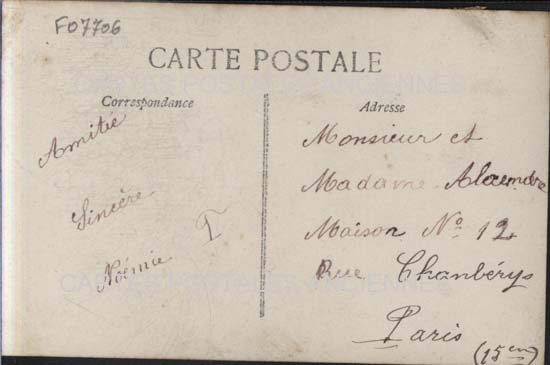 F07706
CARTE POSTALE
Correspondance
Amitié
Sincère
Noémie
Adresse
Monsieur et
Madame Alaemdre
Maison No 12
Rue Chanbérys
Paris
(15em)
CARTES POSTALES ANCIENNES
CARTES POSTALES ANCIENNES